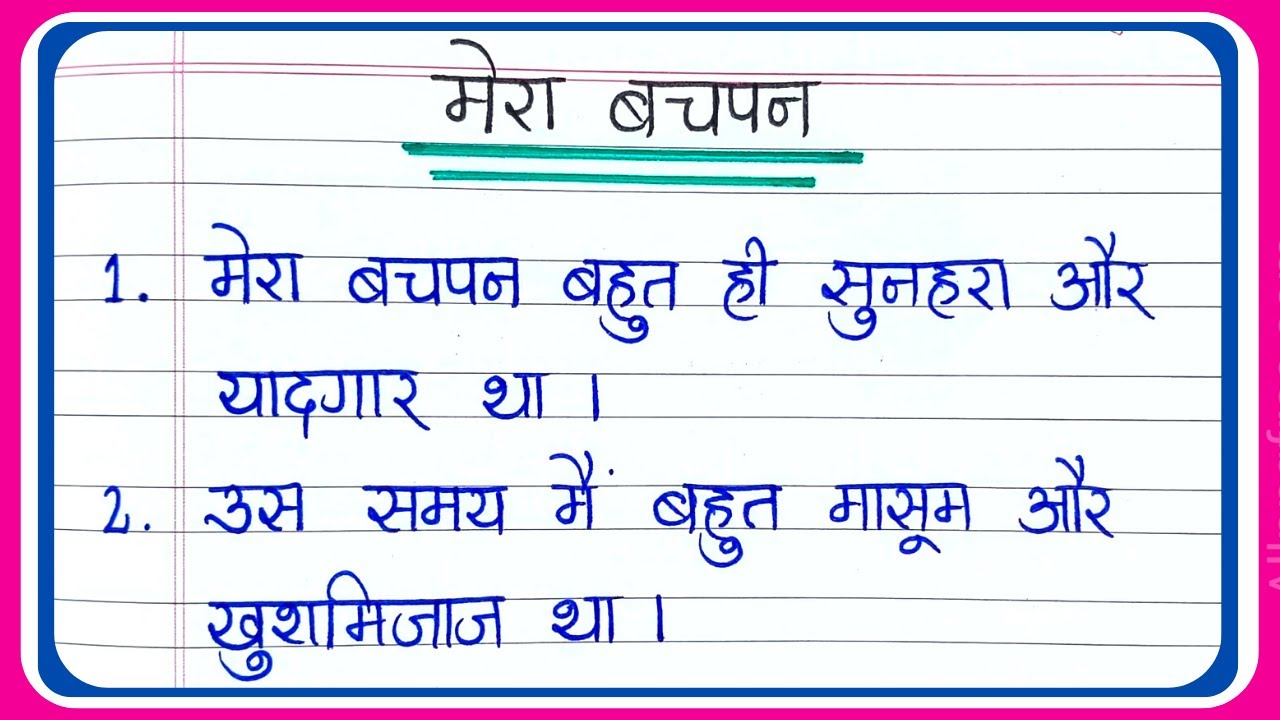 मेरा बचपन
1. मेरा बचपन बहुत ही सुनहरा और
यादगार था ।
2. उस समय मैं बहुत मासूम और
खुशमिजाज था ।